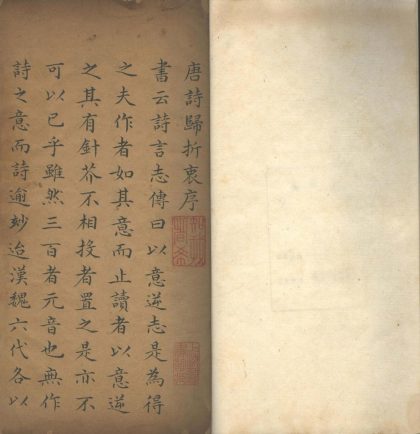 唐詩歸折衷序
書云詩言志傳曰以意逆志是為得
之夫作者如其意而止讀者以意逆
之其有針芥不相投者置之是亦不
可以已乎雖然三百者元音也無作
詩之意而詩逾妙迨漢魏六代各以